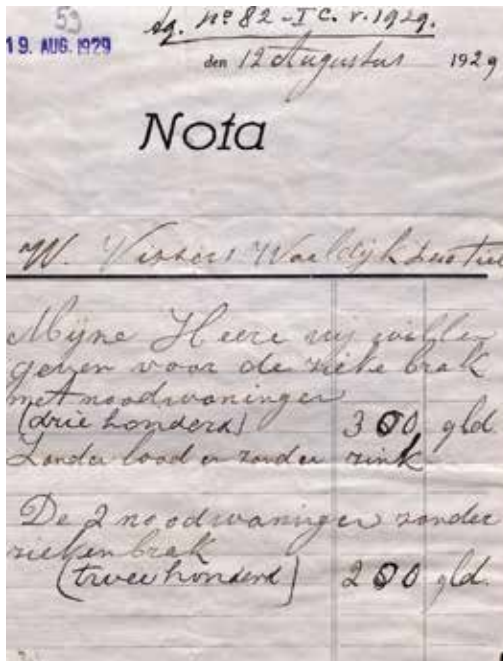 53
Ag. No 82 - I C. v. 1929.
19. AUG. 1929
den 12 Augustus 1929
Nota
W. Vissers Waaldijk
Mijne Heere wij willen
geven voor de zieke brak
met noodwoninger
(drie honderd) 300 gld
Zonder lood en zonder zink
De 2 noodwoninger zonder
zieken brak
(twee honderd) 200 gld.